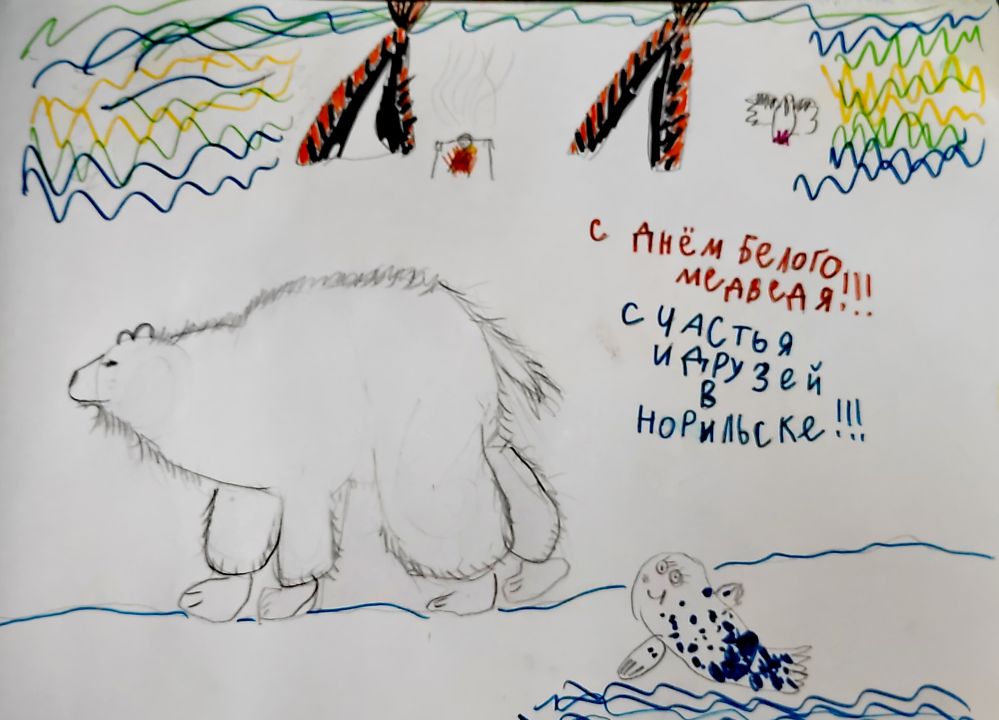 С ДНЁМ БЕЛОГО
МЕДВЕДЯ!!!
СЧАСТЬЯ
И ДРУЗЕЙ
В
НОРИЛЬСКЕ!!!